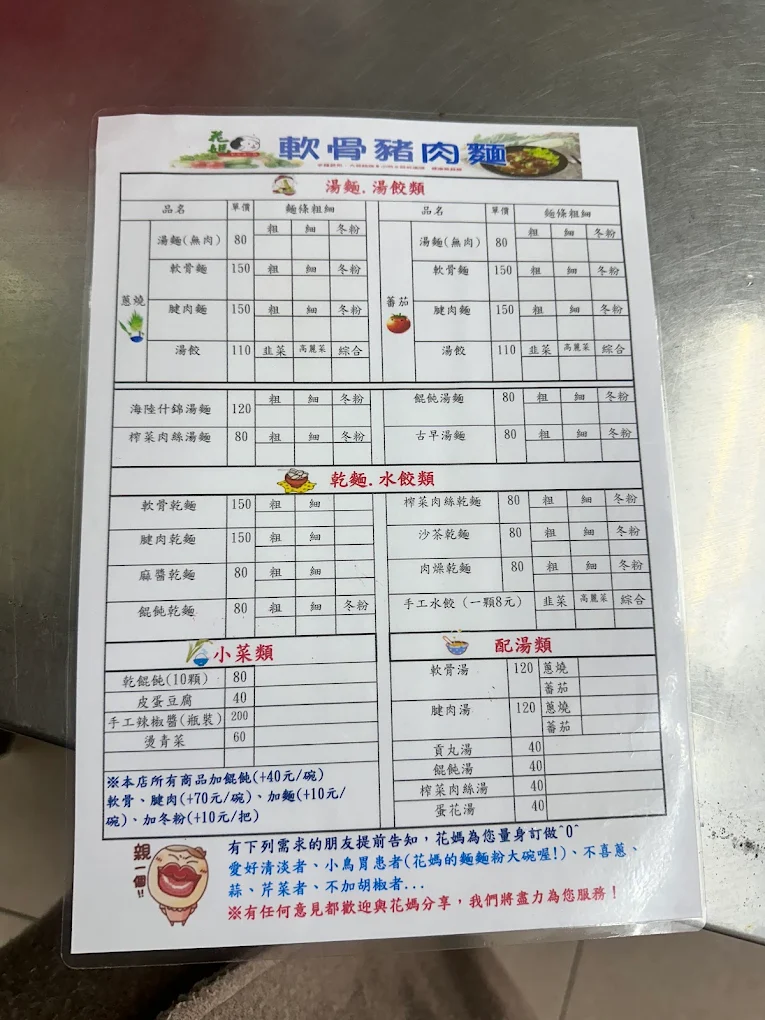 花媽
軟骨豬肉麵
湯麵.湯餃類
品名 單價 麵條粗細 品名 單價 麵條粗細
蔥燒 湯麵(無肉) 80 粗 細 冬粉 蕃茄 湯麵(無肉) 80 粗 細 冬粉
軟骨麵 150 粗 細 冬粉 軟骨麵 150 粗 細 冬粉
腱肉麵 150 粗 細 冬粉 腱肉麵 150 粗 細 冬粉
湯餃 110 韭菜 高麗菜 綜合 湯餃 110 韭菜 高麗菜 綜合
海陸什錦湯麵 120 粗 細 冬粉 餛飩湯麵 80 粗 細 冬粉
榨菜肉絲湯麵 80 粗 細 冬粉 古早湯麵 80 粗 細 冬粉
乾麵.水餃類
軟骨乾麵 150 粗 細 榨菜肉絲乾麵 80 粗 細 冬粉
腱肉乾麵 150 粗 細 沙茶乾麵 80 粗 細 冬粉
麻醬乾麵 80 粗 細 肉燥乾麵 80 粗 細 冬粉
餛飩乾麵 80 粗 細 冬粉 手工水餃(一顆8元) 韭菜 高麗菜 綜合
小菜類
乾餛飩(10顆) 80
皮蛋豆腐 40
手工辣椒醬(瓶裝) 200
燙青菜 60
配湯類
軟骨湯 120 蔥燒
蕃茄
腱肉湯 120 蔥燒
蕃茄
貢丸湯 40
餛飩湯 40
榨菜肉絲湯 40
蛋花湯 40
※本店所有商品加餛飩(+40元/碗)
軟骨、腱肉(+70元/碗)、加麵(+10元/
碗)、加冬粉(+10元/把)
親一個!!
有下列需求的朋友提前告知,花媽為您量身訂做^0^
愛好清淡者、小鳥胃患者(花媽的麵麵粉大碗喔!)、不喜蔥、
蒜、芹菜者、不加胡椒者...
※有任何意見都歡迎與花媽分享,我們將盡力為您服務!